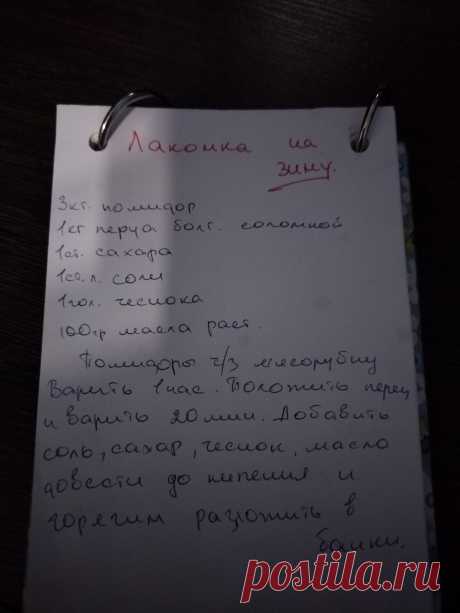 Лакомка на
зиму.
3кг. помидор
1кг перца болг. соломкой
1ст. сахара
1ст.л. соли
1гол. чеснока
100гр масла раст.
Помидоры ч/з мясорубку
Варить 1час. Положить перец
и варить 20мин. Добавить
соль, сахар, чеснок, масло
довести до кипения и
горячим разложить в
банки.
postila.ru